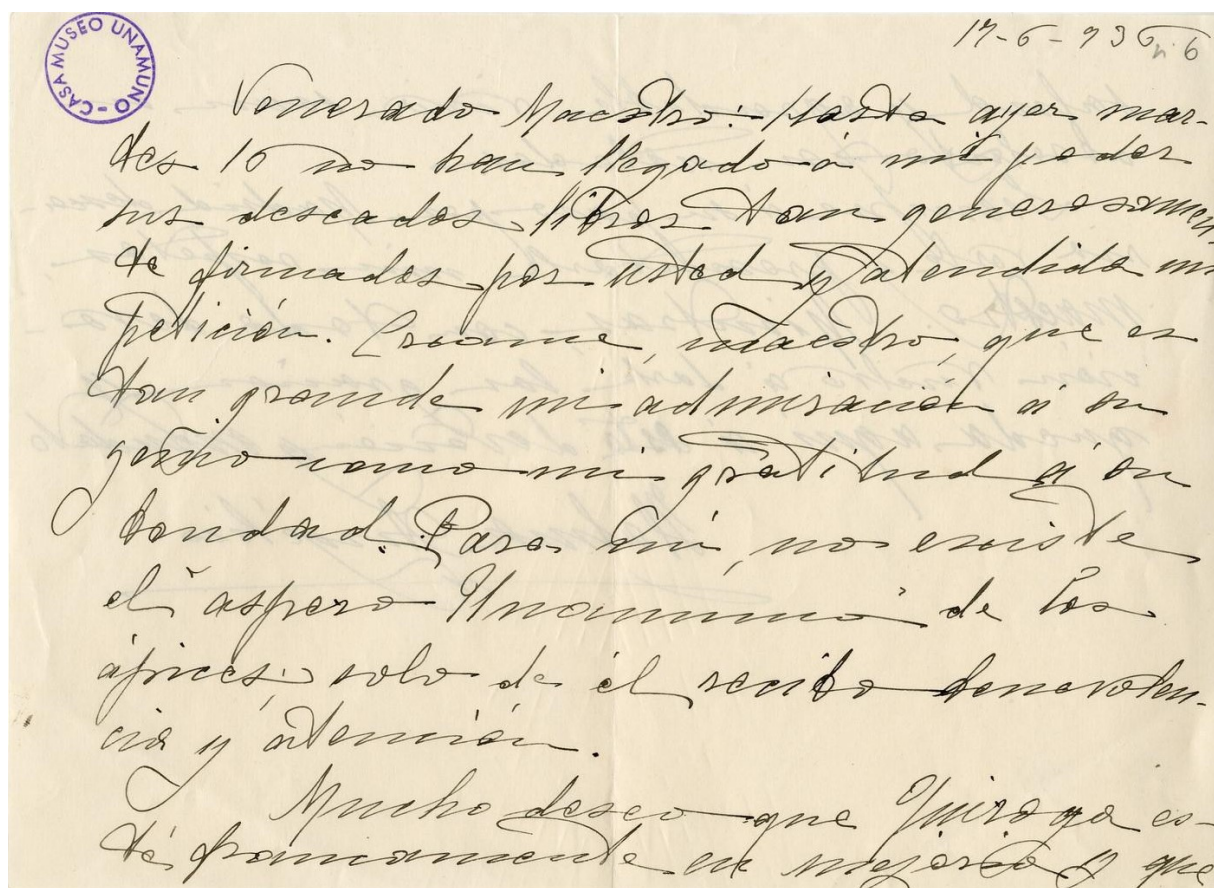 CASA MUSEO UNAMUNO
17-6-936
n. 6
Venerado Maestro: Hasta ayer mar-
tes 16 no han llegado á mi poder
sus deseados libros tan generosamen
te firmados por usted y atendida mi
petición. Créame, maestro, que es
tan grande mi admiración á su
genio como mi gratitud á su
bondad. Para mí, no existe
el "áspero Unamuno" de los
ápices; solo de él recibo benevolen-
cia y atención.
Mucho deseo que Quiroga es-
té francamente en mejoría y que